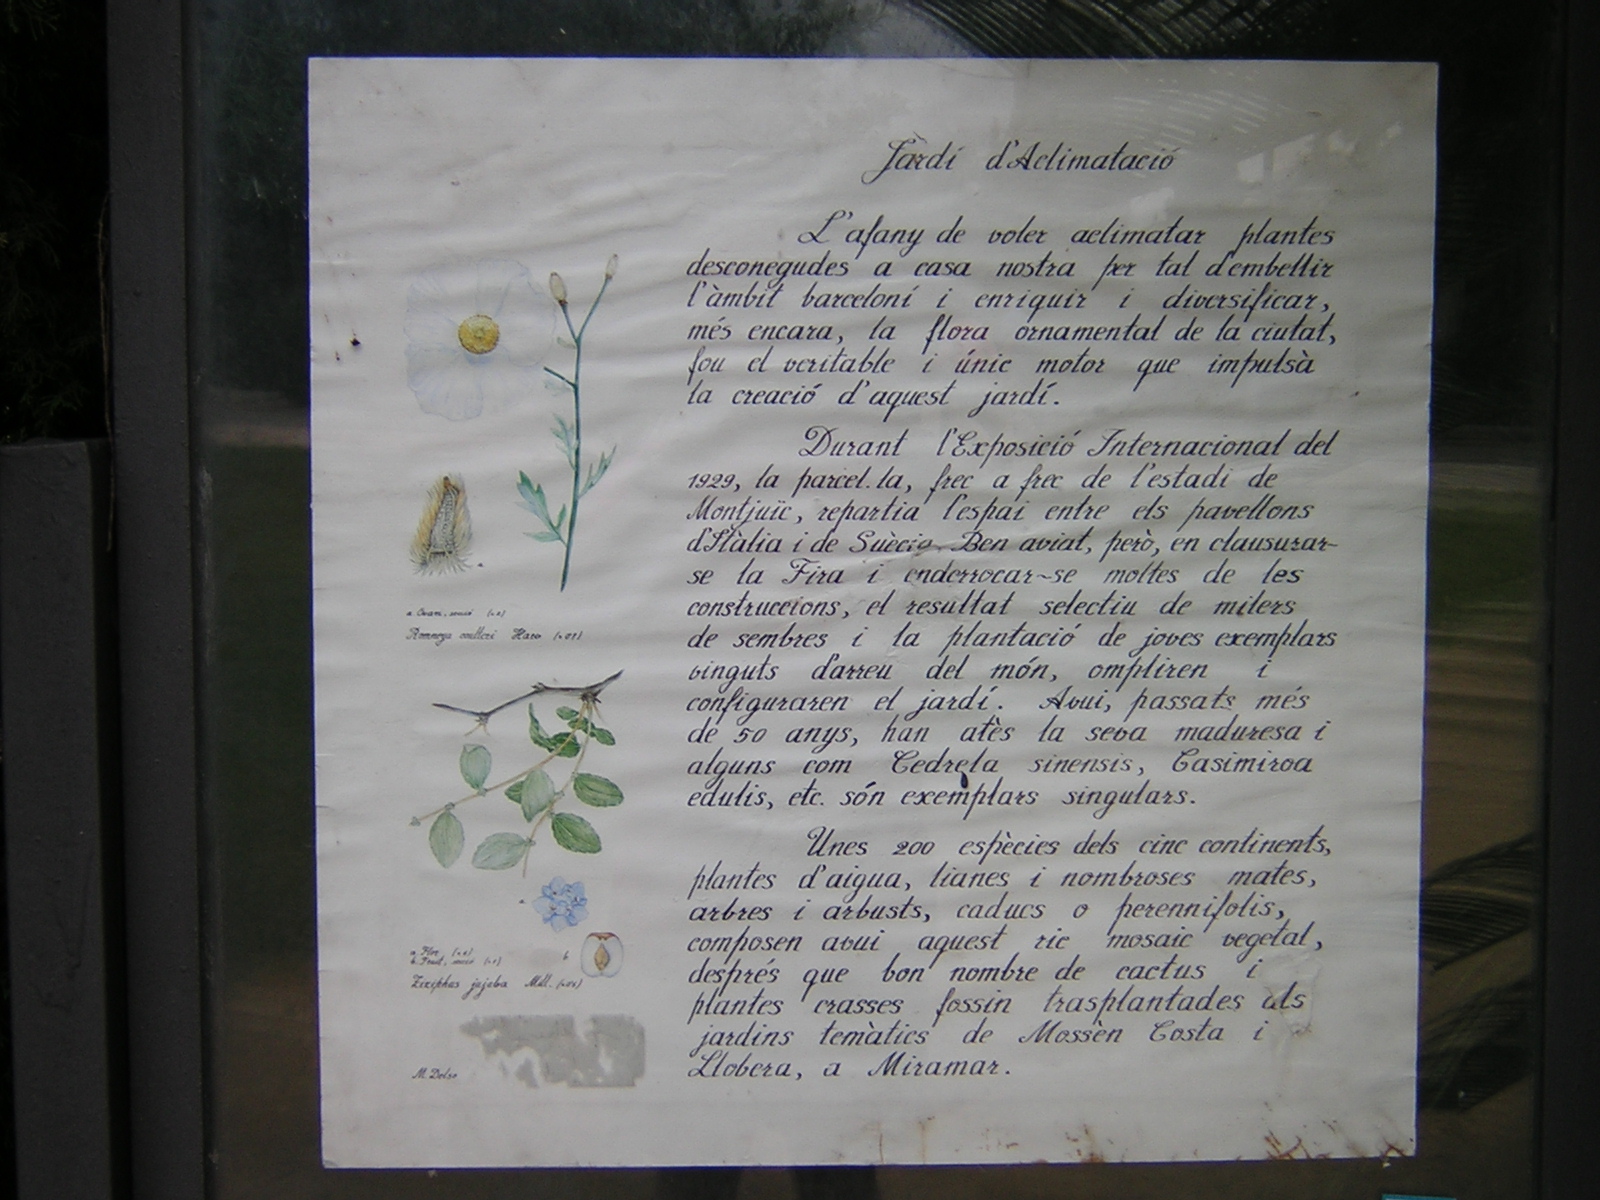 Jardí d'Aclimatació
L'afany de voler aclimatar plantes
desconegudes a casa nostra per tal d'embellir
l'àmbit barceloní i enriquir i diversificar,
més encara, la flora ornamental de la ciutat,
fou el veritable i únic motor que impulsà
la creació d'aquest jardí.
Durant l'Exposició Internacional del
1929, la parcel.la, frec a frec de l'estadi de
Montjuïc, repartia l'espai entre els pavellons
d'Itàlia i de Suècia. Ben aviat, però, en clausurar-
se la Fira i enderrocar-se moltes de les
construccions, el resultat selectiu de milers
de sembres i la plantació de joves exemplars
vinguts d'arreu del món, ompliren i
configuraren el jardí. Avui, passats més
de 50 anys, han atès la seva maduresa i
alguns com Cedrela sinensis, Casimiroa
edulis, etc. són exemplars singulars.
Unes 200 espècies dels cinc continents,
plantes d'aigua, lianes i nombroses mates,
arbres i arbusts, caducs o perennifolis,
composen avui aquest ric mosaic vegetal,
després que bon nombre de cactus i
plantes crasses fossin trasplantades als
jardins temàtics de Mossèn Costa i
Llobera, a Miramar.
a. Ovari, secció
Romneya coulteri Harv
a. Flor
b. Fruit, secció
a
b
Ziziphus jujuba Mill.